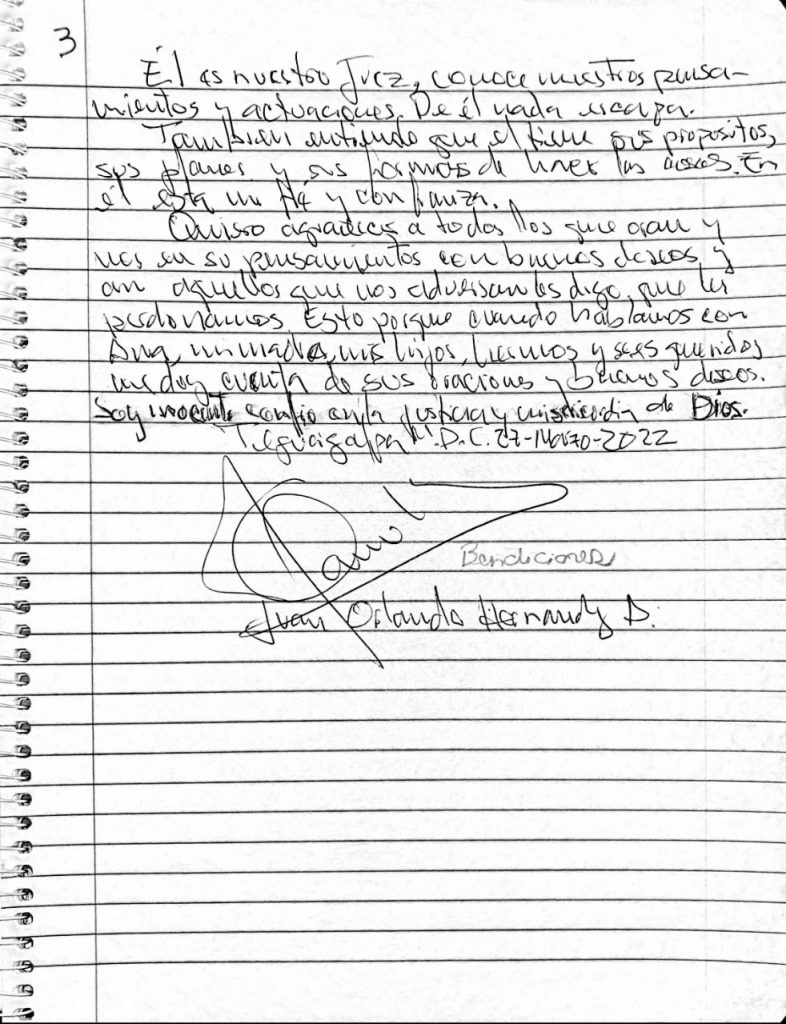 3
Él es nuestro Juez, conoce nuestros pensa-
mientos y actuaciones. De él nada escapa.
Tambien entiendo que el tiene sus propositos,
sus planes y sus formas de hacer las cosas. En
él está mi fé y confianza.
Quisiero agradecer a todos los que oran y
nos en su pensamientos con buenos deseos, y
aquellos que nos adversan les digo, que les
perdonamos. Esto porque cuando hablamos con
Ana, mi madre, mis hijos, hermnos y seres queridos
me doy cuenta de sus oraciones y buenos deseos.
Soy inocente confio en la justicia y misericordia de Dios.
Tegucigalpa M.D.C. 27-Marzo-2022
Bendiciones
Juan Orlando Hernandz A.